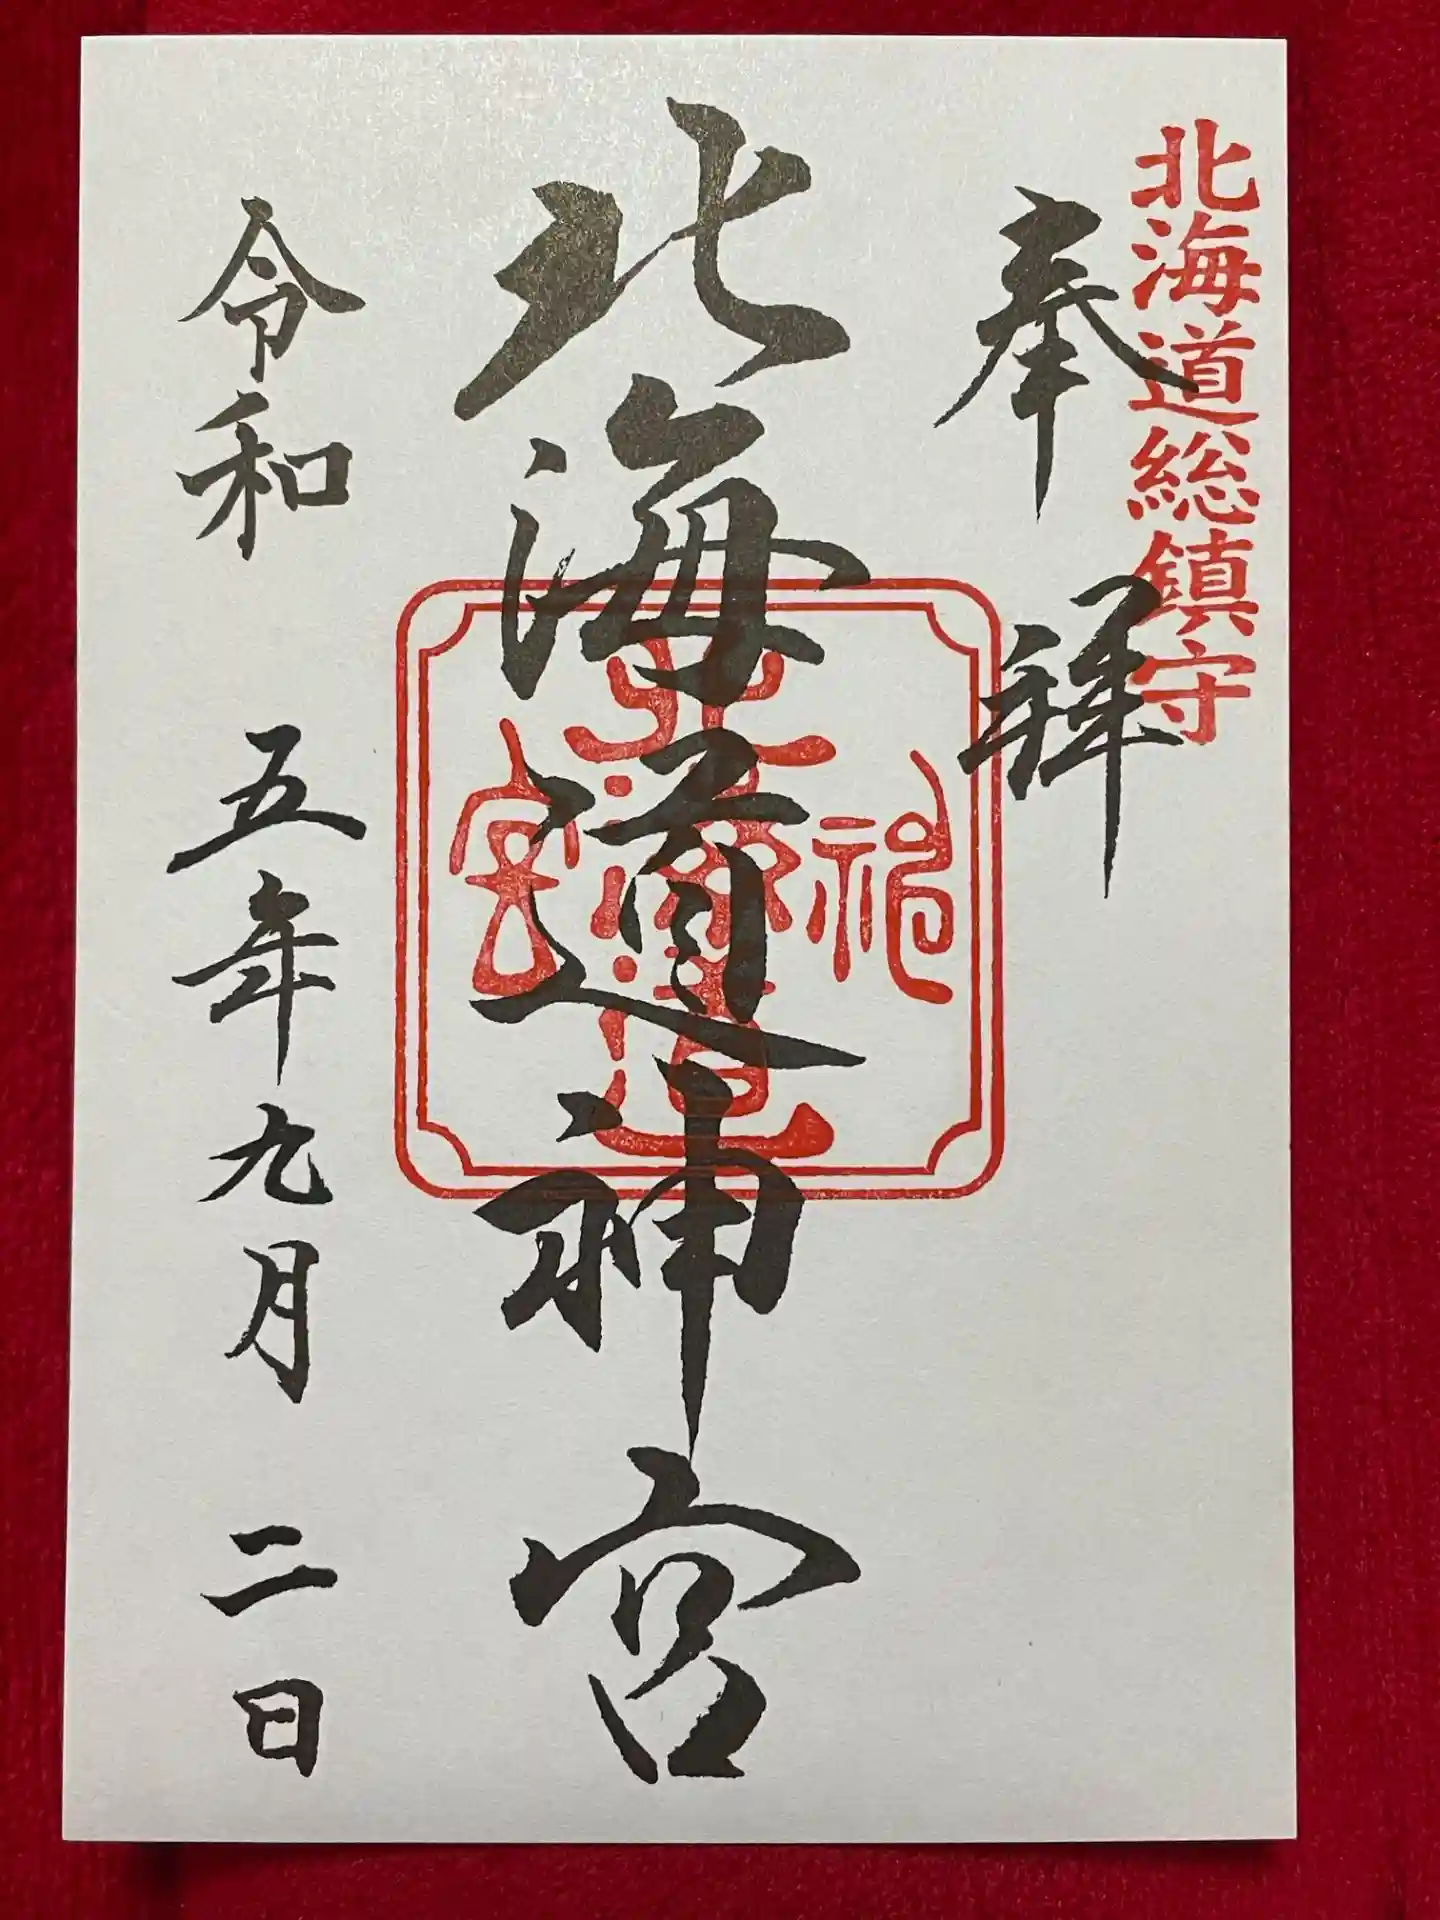 北海道総鎮守
奉拝
北海道神宮
北海道神宮
令和五年九月二日